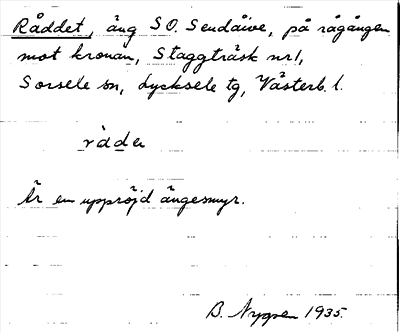 Råddet, äng SO. Sendåive, på rågången
mot kronan, Staggträsk nr 1,
Sorsele sn, Lycksele tg, Västerb. l.
rådde
Är en uppröjd ängesmyr.
B. Nygren 1935.